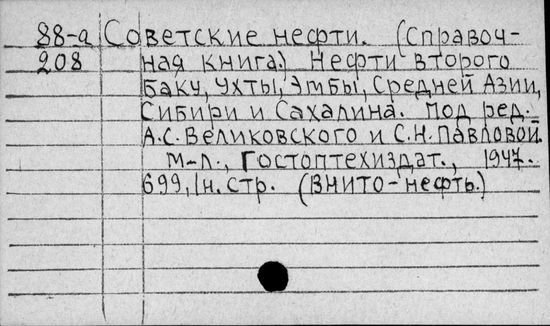 88-а Советские нефти. (Справоч-
208 ная книга.) Нефти второго
Баку, Ухты, Эмбы, Средней Азии,
Сибири и Сахалина. Под ред.
А.С. Великовского и С.Н. Павловой.
М-Л., Гостоптехиздат., 1947.
699, 1н. стр. (ВНИТО-нефть.)